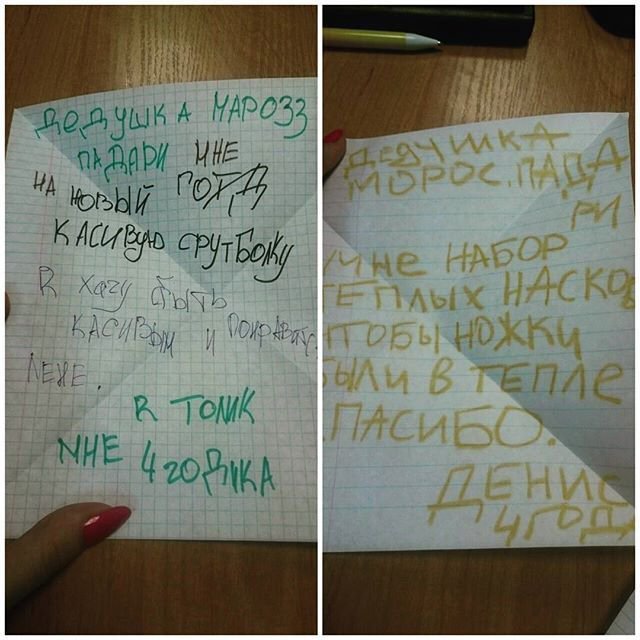 ДЕДУШКА МАРОЗЗ
ПАДАРИ МНЕ
НА НОВЫЙ ГОДД
КАСИВУЮ ФРУТБОЛКУ
Я хачу быть
КАСИВЫМ И
ЛЕНЕ.
Я ТОЛИК
МНЕ 4 годика
ДЕДУШКА
МОРОС, ПАДА
РИ
МНЕ НАБОР
ТЕПЛЫХ НАСКОВ
ЧТОБЫ НОЖКИ
БЫЛИ В ТЕПЛЕ
ПАСИБО.
ДЕНИС
4 ГОД